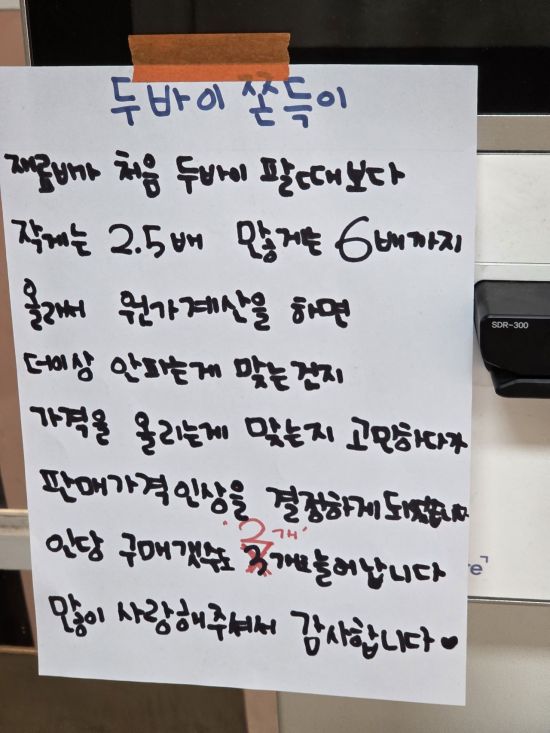 두바이 쫀득이
재료비가 처음 두바이 팔때보다
작게는 2.5배 많게는 6배까지
올라서 원가계산을 하면
더이상 안파는게 맞는건지
가격을 올리는게 맞는지 고민하다가
판매가격인상을 결정하게되었습니다
2개
인당 구매갯수도 3개로늘어납니다
많이 사랑해주셔서 감사합니다♥
SDR-300